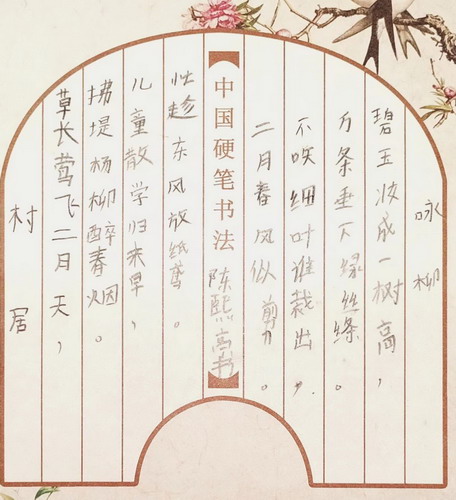 咏柳
碧玉妆成一树高，
万条垂下绿丝绦。
不咲细叶谁裁出，
二月春风似剪刀。
中国硬笔书法
陈熙高书
村居
草长莺飞二月天，
拂堤杨柳醉春烟。
儿童散学归来早，
忙趁东风放纸鸢。